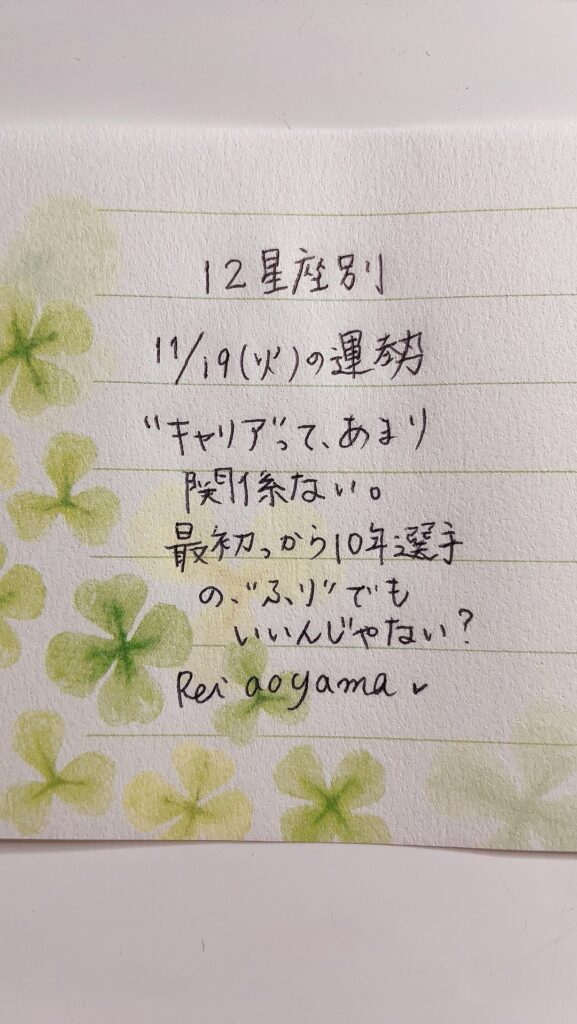 12星座別
11/19(火)の運勢
“キャリア”って、あまり
関係ない。
最初っから10年選手
の、“ふり”でも
いいんじゃない?
Rei aoyama